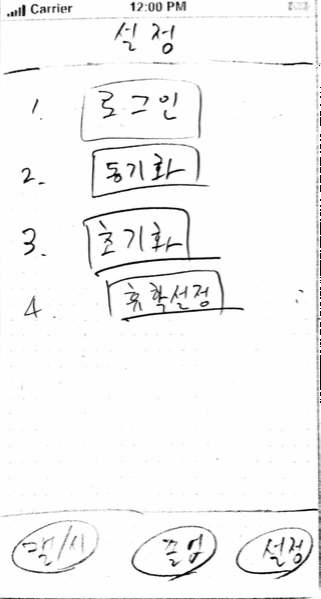 Carrier 12:00 PM
설정
1. 로그인
2. 동기화
3. 초기화
4. 휴학설정
캘/시 졸업 설정